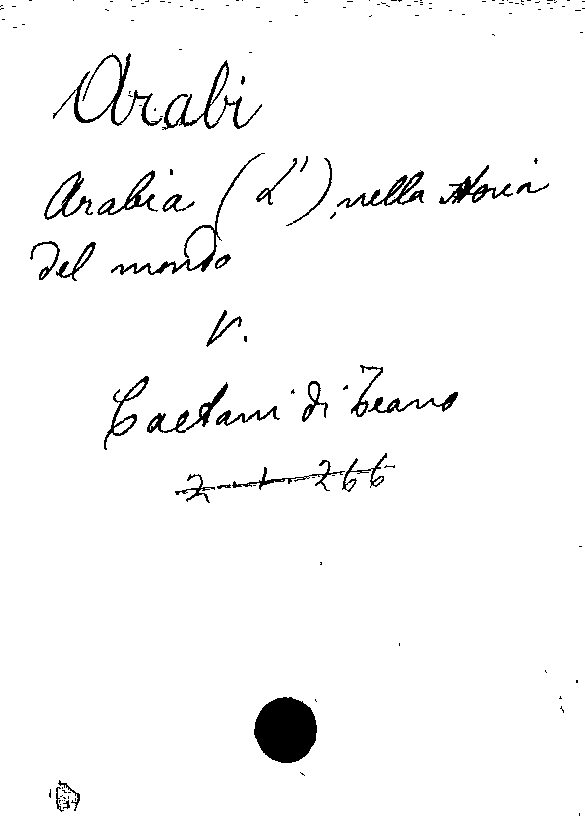 Arabi
Arabia (L') nella storia
del mondo
V.
Caetani di Teano
2 . 1 . 266